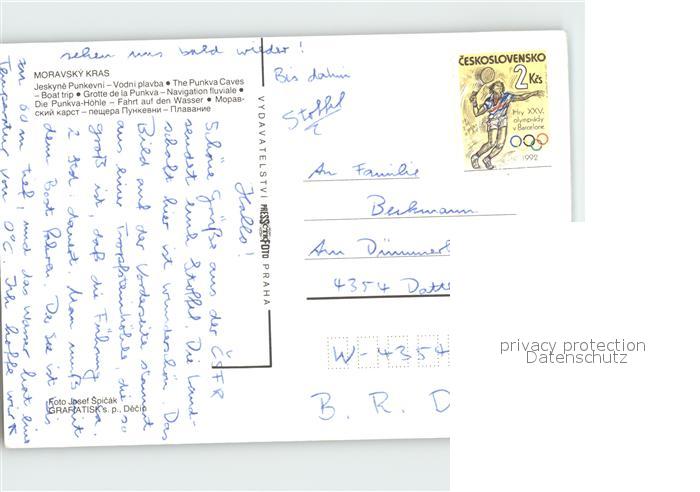 MORAVSKÝ KRAS
Jeskyně Punkevní – Vodní plavba ● The Punkva Caves
– Boat trip ● Grotte de la Punkva – Navigation fluviale ●
Die Punkva-Höhle – Fahrt auf den Wasser ● Морав-
ский карст – пещера Пункевни – Плавание
Hallo!
Schöne Grüße aus der ČSFR
sendet euch Stoffel. Die Land-
schaft hier ist wunderschön. Das
Bild auf der Vorderseite stammt
aus einer Tropfsteinhöhle, die so
groß ist, daß die Führung ca.
2 Std. dauert. Man muß mit
dem Boot fahren. Der See ist
zum 60 m tief! und das Wasser hat eine
Temperatur von 0°C. Ich hoffe wir
sehen uns bald wieder!
Bis dahin
Stoffel
Foto Josef Špičák
GRAFATISK s. p., Děčín
VYDAVATELSTVÍ PRESSFOTO PRAHA
ČESKOSLOVENSKO
2 Kčs
Hry XXV.
olympiády
v Barceloně
1992
An Familie
Beckmann
Am Dümmer
4354 Datt
W-4354
B. R. D
privacy protection
Datenschutz